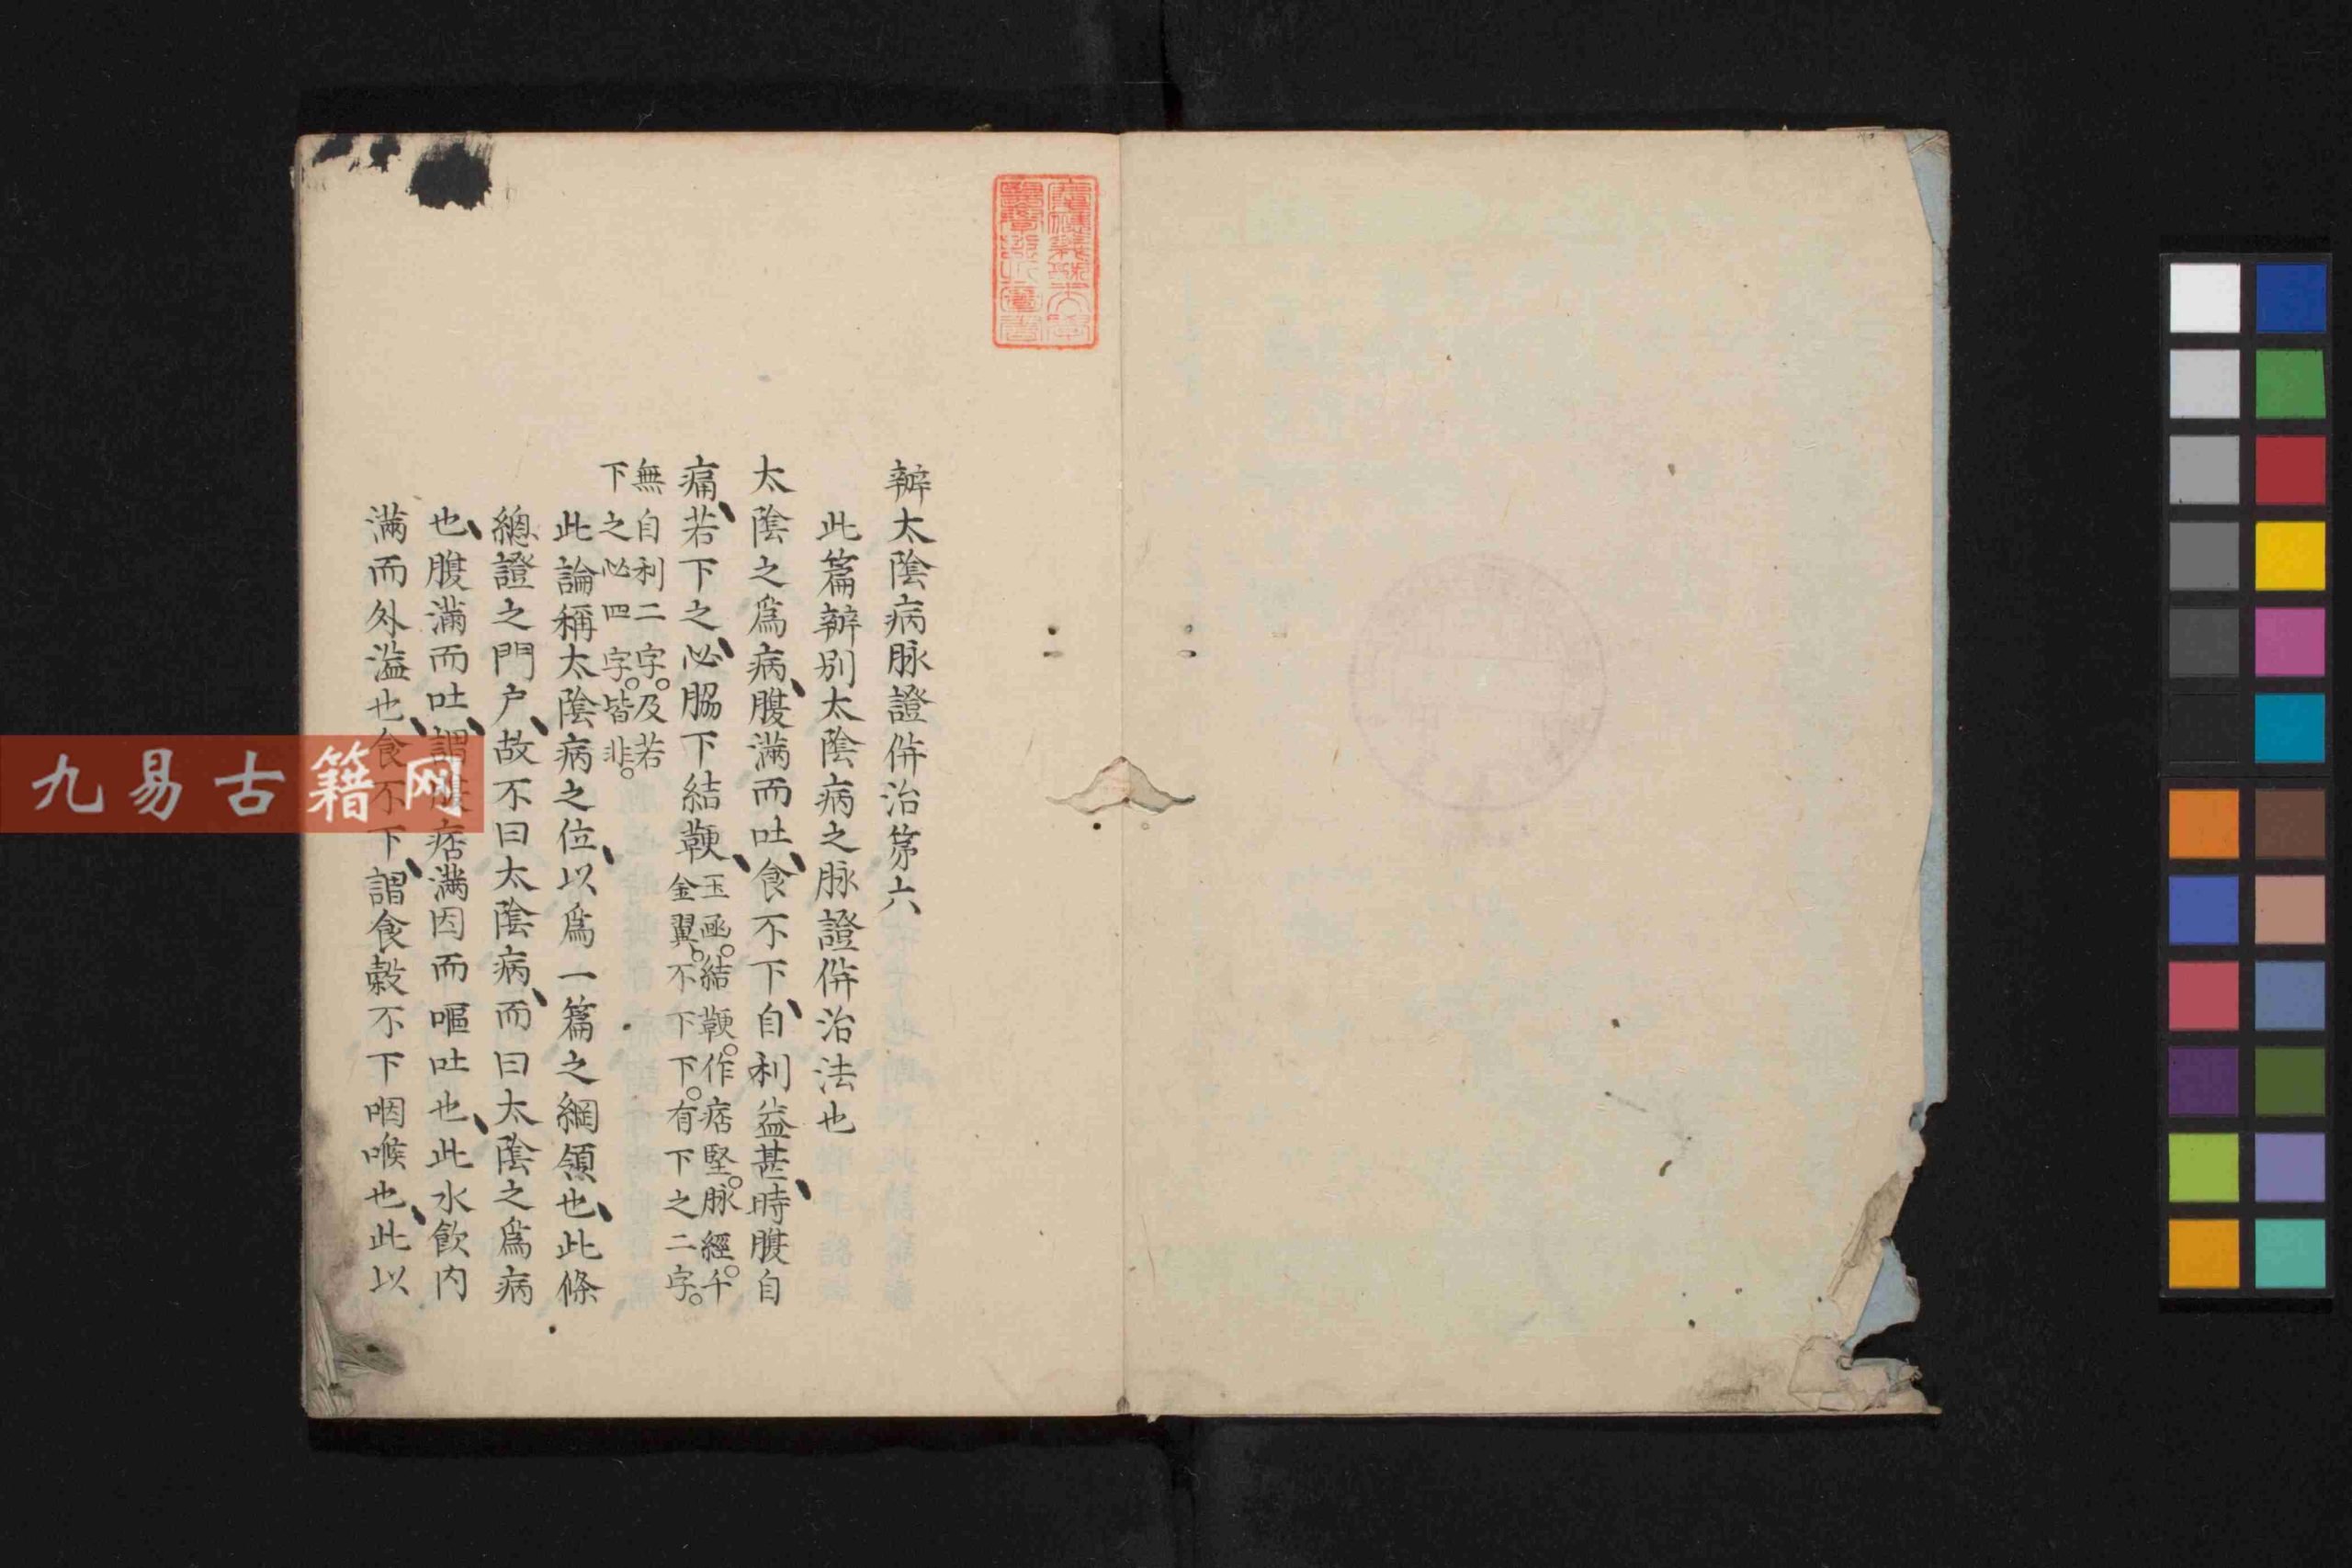 辨太陰病脉證併治第六
此篇辨別太陰病之脉證併治法也
太陰之爲病、腹滿而吐、食不下、自利益甚、時腹自
痛、若下之、必胸下結鞕、玉函。結鞕。作痞堅。脉經。千
金翼。不下下。有下之二字。
無自利二字。及若
下之必四字。皆非。
此論稱太陰病之位、以爲一篇之綱領也、此條
總證之門户、故不曰太陰病、而曰太陰之爲病
也、腹滿而吐、謂腹痞滿因而嘔吐也、此水飲内
滿而外溢也、食不下、謂食穀不下咽喉也、此以
九易古籍网